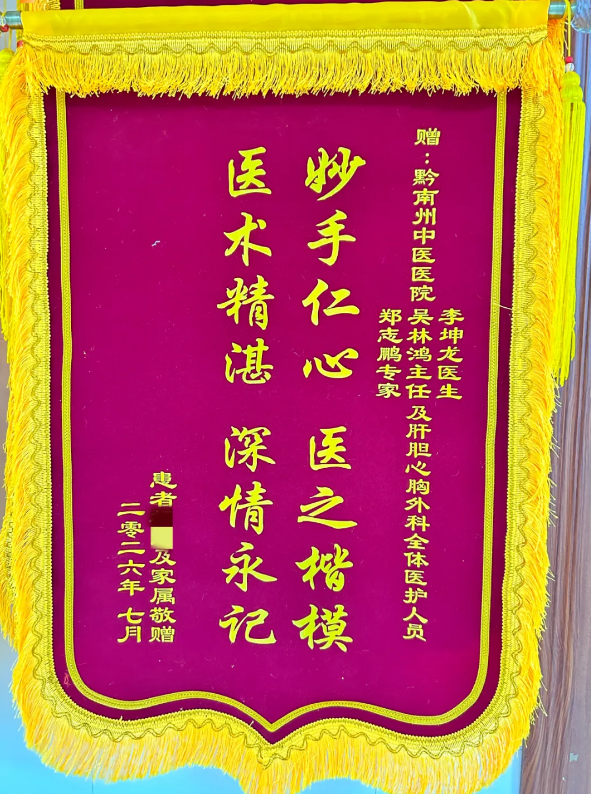 赠：黔南州中医医院
李坤龙医生
吴林鸿主任及肝胆心胸外科全体医护人员
郑志鹏专家
妙手仁心 医之楷模
医术精湛 深情永记
患者及家属敬赠
二零二六年七月